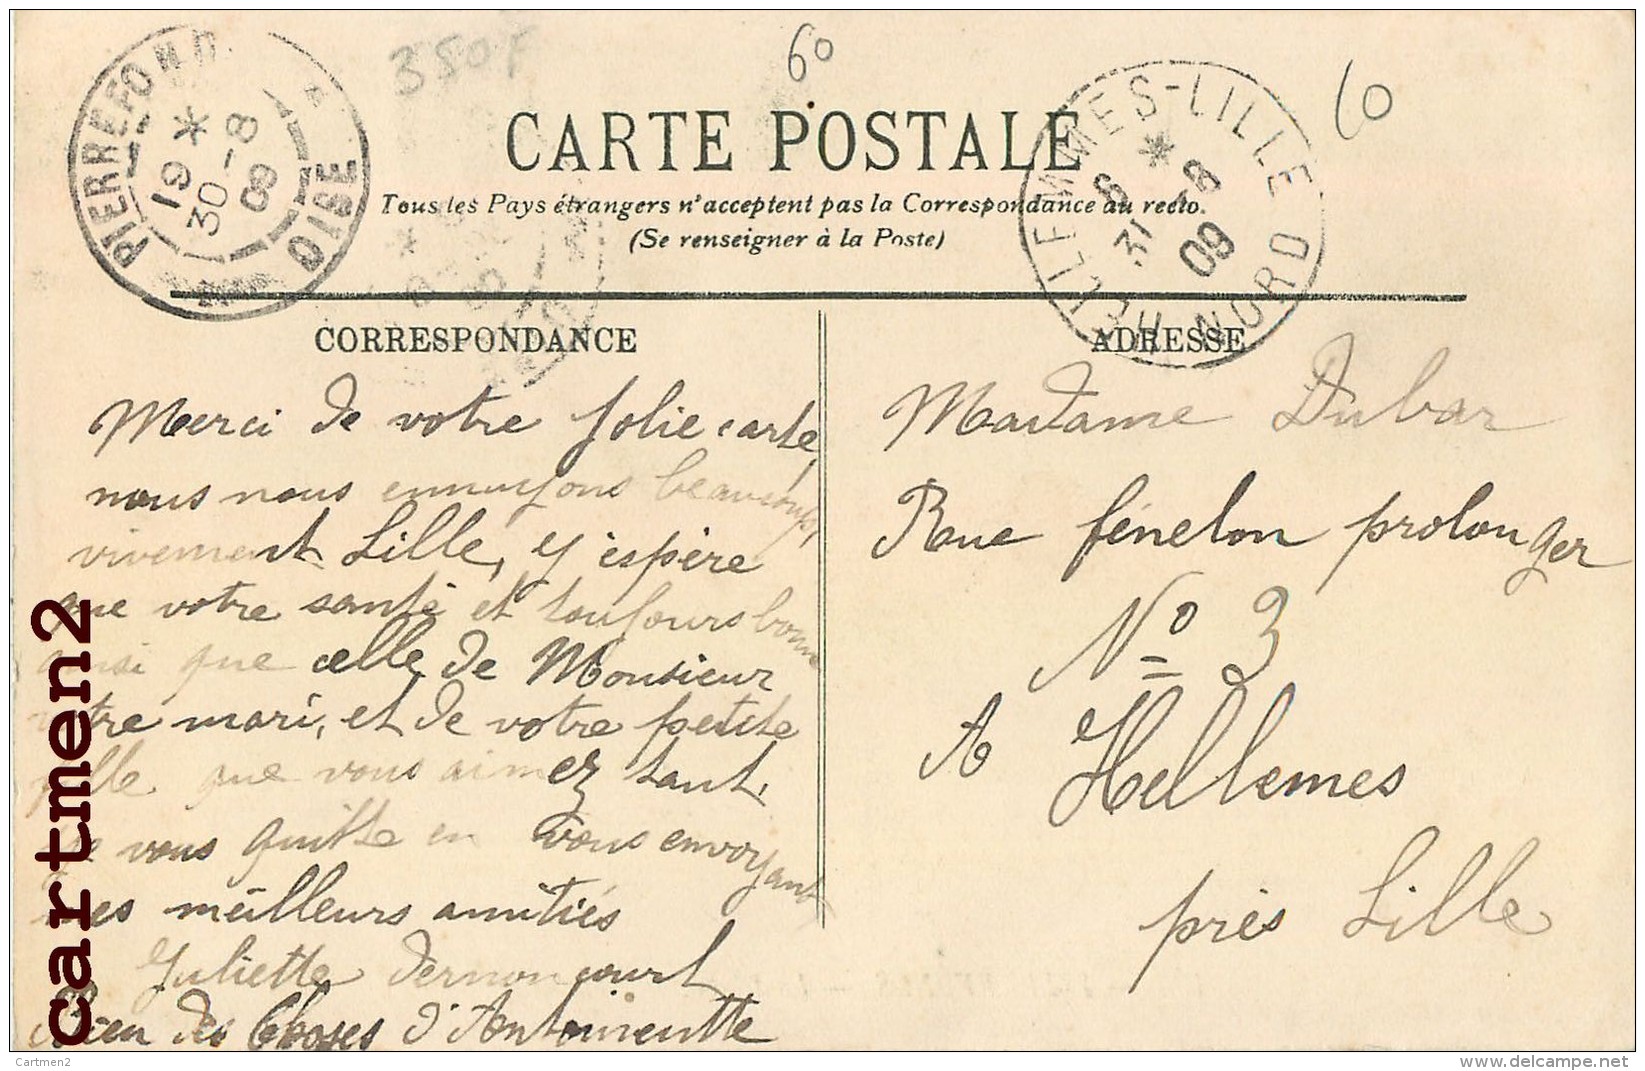 PIERREFONDS OISE
19 *
30-8
09
350F
60
60
HELLEMMES-LILLE NORD
6 *
31-8
09
CARTE POSTALE
Tous les Pays étrangers n'acceptent pas la Correspondance au recto.
(Se renseigner à la Poste)
CORRESPONDANCE
Merci de votre jolie carte,
nous nous ennuyons beaucoup,
vivement Lille, y j'espère
que votre santé et toujours bonne
ainsi que celle de Monsieur
votre mari, et de votre petite
fille que vous aimez tant,
je vous quitte en vous envoyant
mes meilleurs amitiés
Juliette Dernoncourt
Bien des Choses d'Antoinentte
ADRESSE
Madame Dubar
Rue fénelon prolonger
No 3
A Hellemes
près Lille
cartmen2
Cartmen2
www.delcampe.net